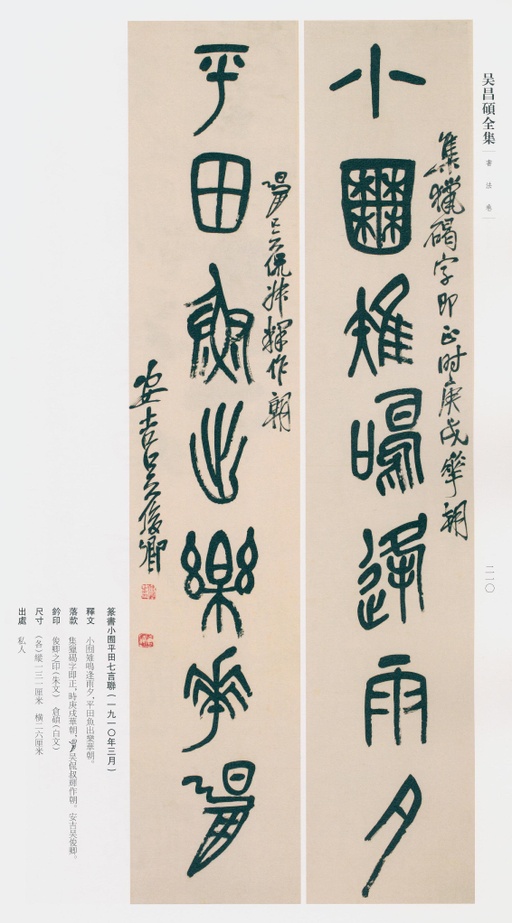 吴昌碩全集 書法卷
二一〇
小囿雉鳴逢雨夕
集獵碣字即正時庚戌華朝
平田魚出樂華朝
吴侃叔釋作朝
安吉吴俊卿
篆書小囿平田七言聯(一九一〇年三月)
釋文 小囿雉鳴逢雨夕,平田魚出樂華朝。
落款 集獵碣字即正,時庚戌華朝,吴侃叔釋作朝。安吉吴俊卿。
鈐印 俊卿之印(朱文) 倉碩(白文)
尺寸 (各)縱一三一厘米 橫二六厘米
出處 私人